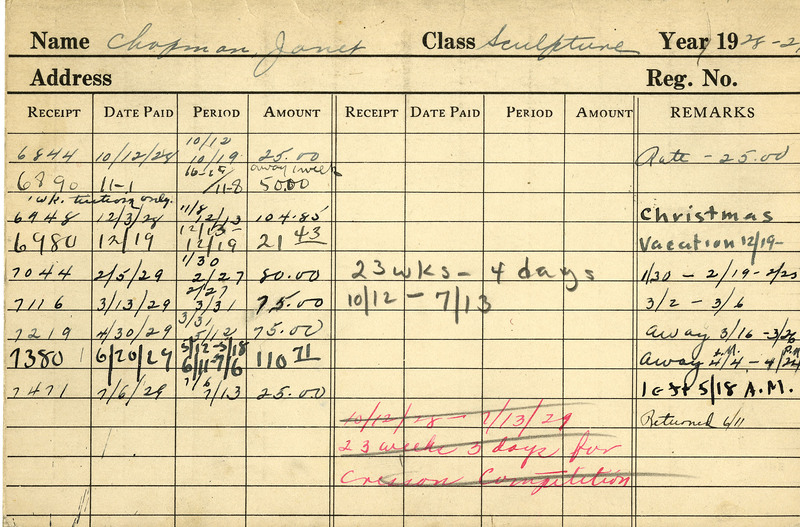 Name Chapman, Janet Class Sculpture Year 1928-2
Address Reg. No.
RECEIPT DATE PAID PERIOD AMOUNT RECEIPT DATE PAID PERIOD AMOUNT REMARKS
10/12
6844 10/12/28 10/19 25.00 Rate - 25.00
away 1 week
6890 11-1 10-19 / 11-8 50.00
1 wk. tuition only.
11/8
6948 12/3/28 12/13 104.85 Christmas
12/13-
6980 12/19 12/19 21 43 Vacation 12/19-
1/30
7044 2/5/29 2/27 80.00 23 wks - 4 days 1/30 - 2/19-2/25
2/27
7116 3/13/29 3/31 75.00 10/12 - 7/13 3/2 - 3/6
3/31
7219 4/30/29 5/12 75.00 away 3/16 - 3/26
5/12-5/18 A.M. P.M.
7380 6/20/29 6/11-7/6 110 71 away 4/4 - 4/22
7/6
7471 7/6/29 7/13 25.00 left 5/18 A.M.
10/12/28 - 7/13/29 Returned 6/11
23 weeks 3 days for
Cresson Competition